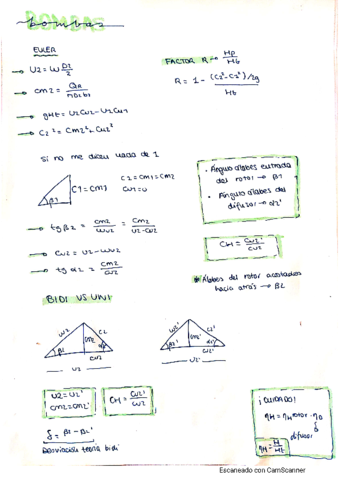 BOMBAS
bombas
EULER
U2 = W D2/2
Cm2 = QR/πD2b2
gHt = U2Cu2 - U1Cu1
C2² = Cm2² + Cu2²
Si no me dicen nada de 1
β1
C1 = Cm1
C1 = Cm1 = Cm2
Cu1 = 0
tg β2 = Cm2/Wu2 = Cm2/U2-Cu2
Cu2 = U2 - Wu2
tg α2 = Cm2/Cu2
FACTOR R → Hp/Ht
R = 1 - (C2²-C1²)/2g / Ht
• Ángulo álabes entrada del rotor → β1
• Ángulo álabes del difusor → α2'
CH = Cu2'/Cu2
* Álabes del rotor acostados hacia atrás → β2
BIDI VS UNI
W2 C2 Cm2 β2 α2 Cu2
U2
W2' C2' Cm2' β2' α2' Cu2'
U2'
U2 = U2'
Cm2 = Cm2'
CH = Cu2'/Cu2
δ = β2 - β2'
Desviación teoría bidi
¡CUIDADO!
ηH = ηHrotor · ηD
difusor
ηH = H/Ht
Escaneado con CamScanner